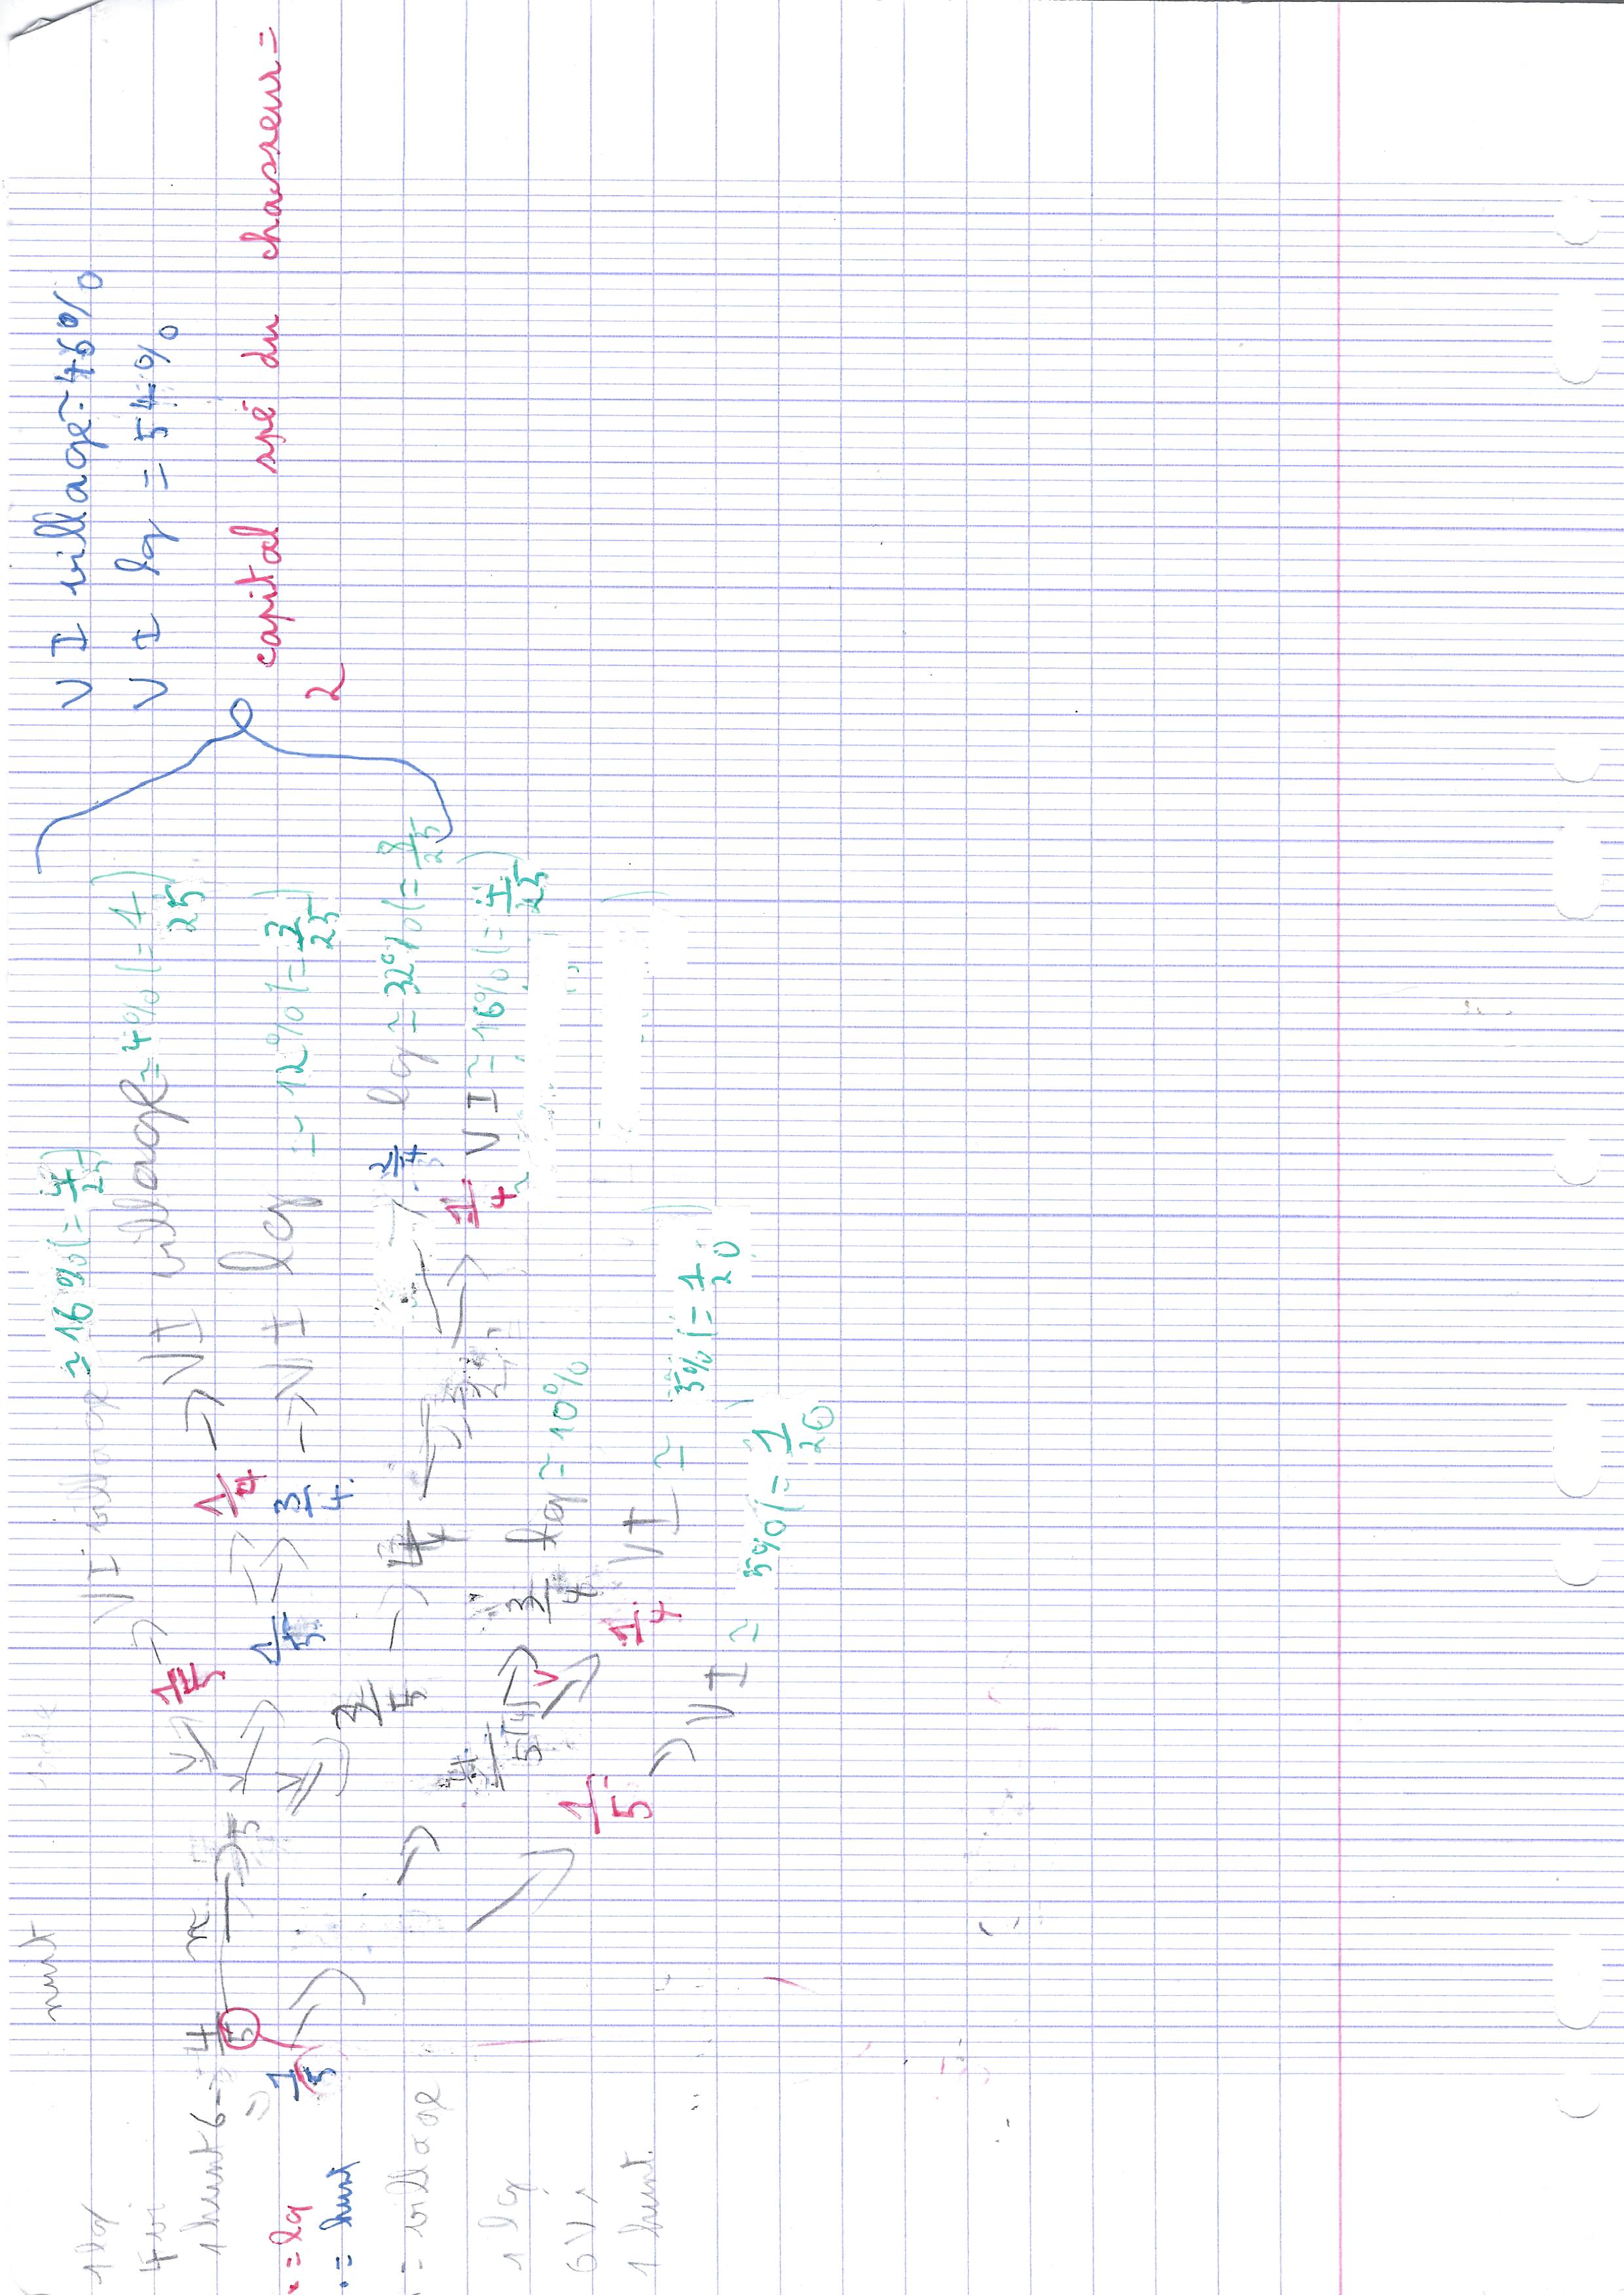 nuit
1 lg
4 vi
1 hunt 6
4/5
n
1/5
= lg
= hunt
= village
1 lg
6 Vi
1 hunt.
V
1/5
VI village ≃ 16% (= 4/25)
V
1/5
1/4
VI village ≃ 4% (= 1/25)
3/4
VI lg ≃ 12% (= 3/25)
V
3/5
4
2/4
lg ≃ 32% (= 8/25
1/4
VI ≃ 16% (= 4/25)
4/5
3/4 lg ≃ 10%
V
1/4 VI ≃ 5% (= 1/20
1/5
VI ≃ 5% (= 1/20
VI village ≃ 46%
VI lg = 54%
capital spé du chasseur =
2